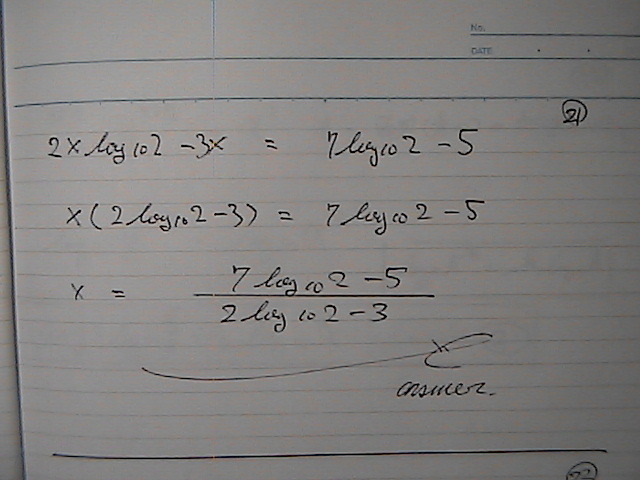 No.
DATE
21
2x log10 2 - 3x = 7 log10 2 - 5
x(2 log10 2 - 3) = 7 log10 2 - 5
x = 7 log10 2 - 5
2 log10 2 - 3
answer.